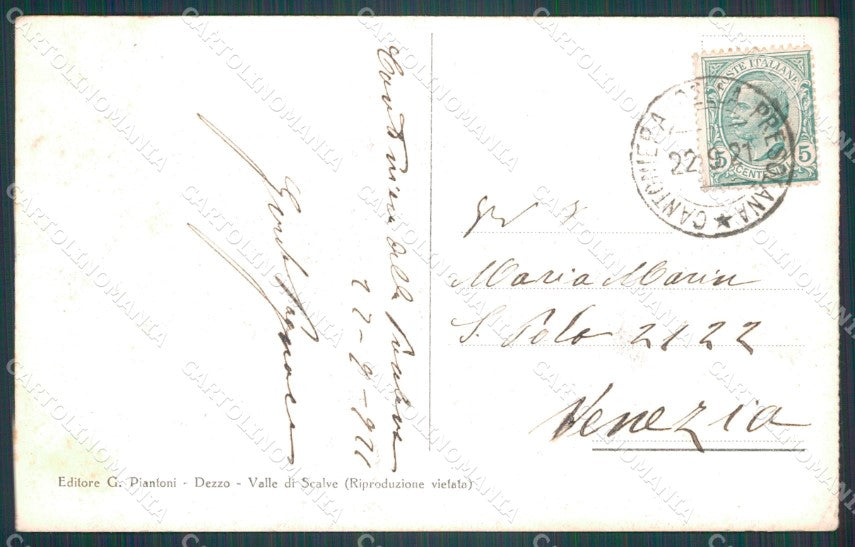 Cantoniera della Presolana
22-9-921
POSTE ITALIANE
5 CENT 5
CANTONIERA DELLA PRESOLANA
22.9.21
Maria Marin
S. Polo 2122
Venezia
Editore G. Piantoni - Dezzo - Valle di Scalve (Riproduzione vietata)
CARTOLINOMANIA